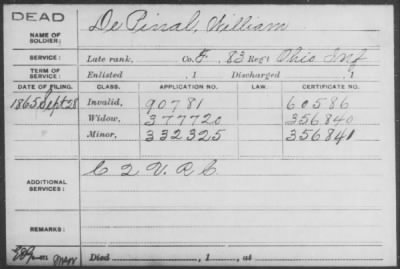 DEAD
NAME OF SOLDIER: De Pinal, William
SERVICE: Late rank, Co. F, 83 Reg't Ohio Inf
TERM OF SERVICE: Enlisted , 1 Discharged , 1
DATE OF FILING. CLASS. APPLICATION NO. LAW. CERTIFICATE NO.
1865 Sept 28 Invalid, 90781 60586
Widow, 377720 356840
Minor, 332325 356841
ADDITIONAL SERVICES: C 2 V. R. C
REMARKS:
Died , 1 , at